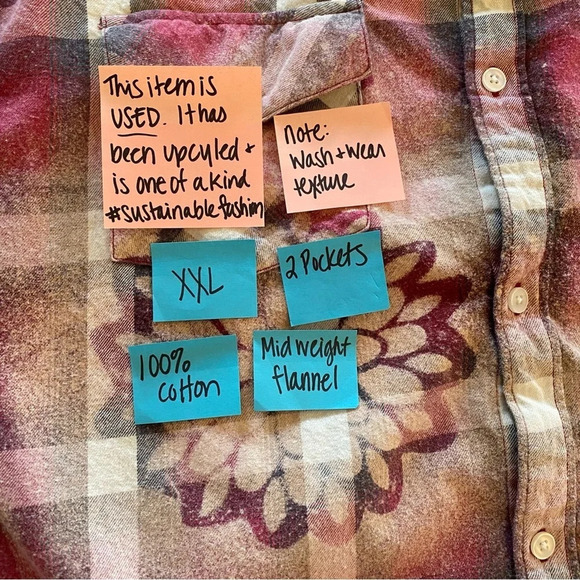 This item is
USED. It has
been upcyled +
is one of a kind
#sustainablefashion
note:
wash + wear
texture
XXL
2 Pockets
100%
cotton
Mid weight
flannel